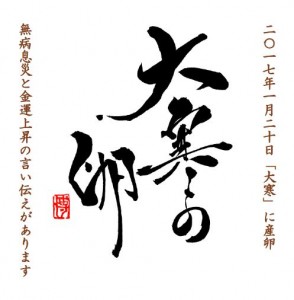 二〇一七年一月二十日「大寒」に産卵
大寒の
卵
無病息災と金運上昇の言い伝えがあります